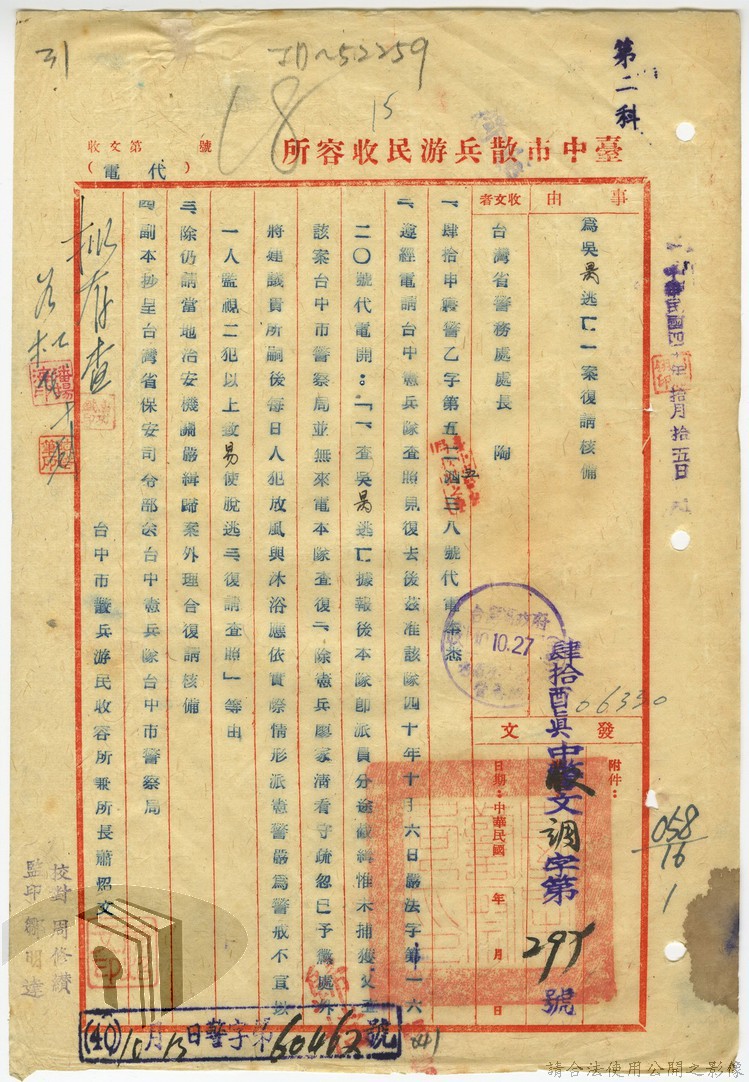 31
JD~52259
15
第二科
臺中市散兵游民收容所
收文第 號
(代電)
事由
為吳晃逃亡一案復請核備
收文者
台灣省警務處處長 陶
發文
附件：
日期：中華民國 年 月 日
肆拾酉真中收文調字第 號
06330
10.27
一、肆拾申 警乙字第五 三八號代電 悉
二、遵經電請台中憲兵隊查照見復去後茲准該隊四十年十月六日嚴法字第一一六
二〇號代電開：「一、查吳晃逃亡據報後本隊即派員分途截緝惟未捕獲又查
該案台中市警察局並無來電本隊查復二、除憲兵廖家清看守疏忽已予懲處外
將建議貴所嗣後每日人犯放風與沐浴應依實際情形派憲警嚴為警戒不宜以
一人監視二犯以上致易使脫逃三、復請查照」等由
三、除仍請當地治安機關嚴緝歸案外理合復請核備
四、副本抄呈台灣省保安司令部台中憲兵隊台中市警察局
台中市散兵游民收容所兼所長蕭炤文
擬存查
中華民國四十年拾月拾五日
校對 周修讚
監印 鄒明達
058
16
1
(40)10月15日警字第60462號
(41)
請合法使用公開之影像